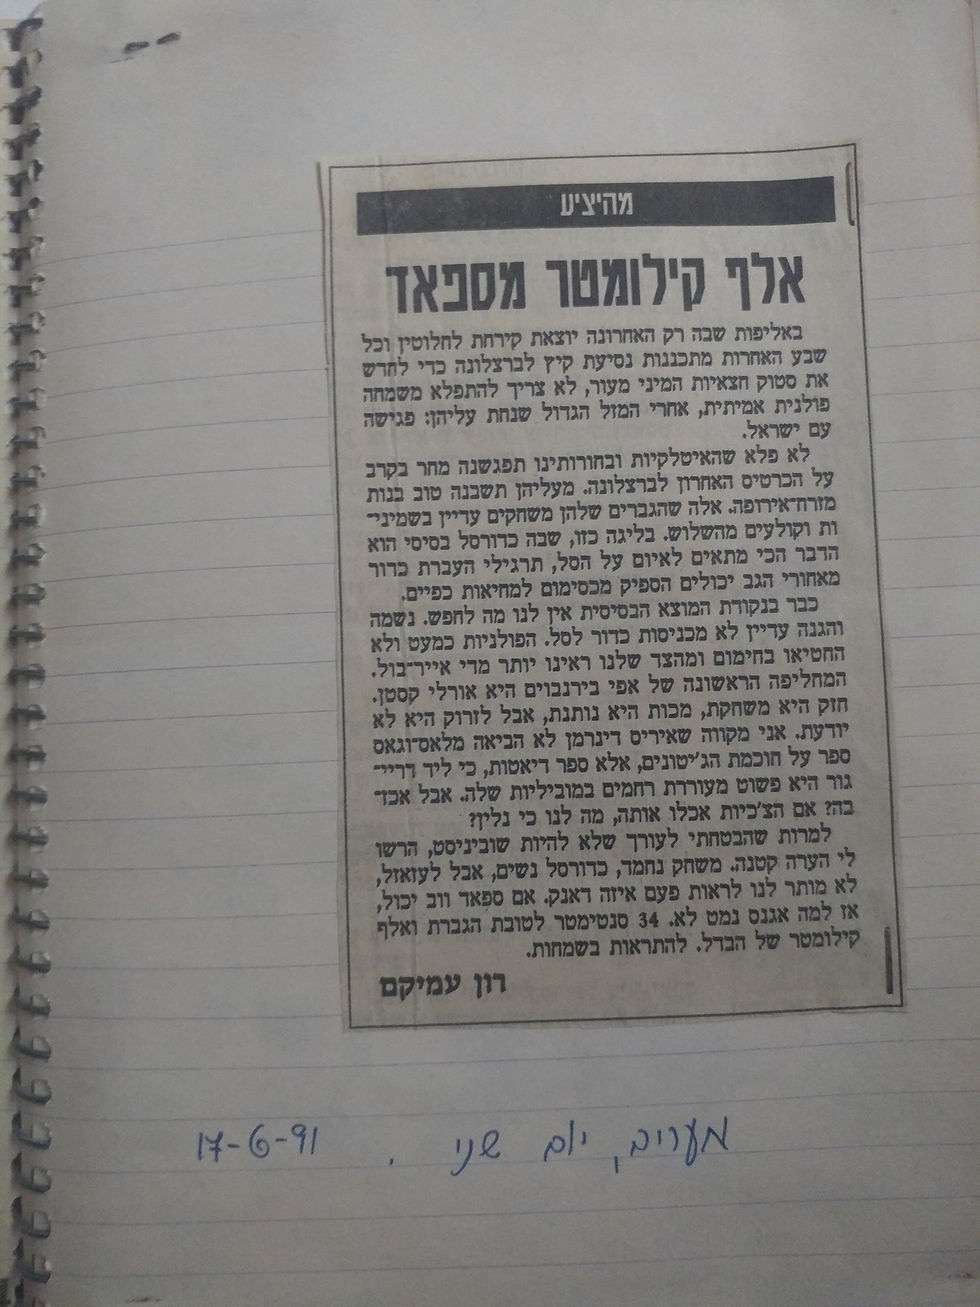 מהיציע
אלף קילומטר מספאד
באליפות שבה רק האחרונה יוצאת קירחת לחלוטין וכל
שבע האחרות מתכננות נסיעת קיץ לברצלונה כדי לחדש
את סטוק חצאיות המיני מעור, לא צריך להתפלא משמחה
פולנית אמיתית, אחרי המזל הגדול שנחת עליהן: פגישה
עם ישראל.
לא פלא שהאיטלקיות ובחורותינו תפגשנה מחר בקרב
על הכרטיס האחרון לברצלונה. מעליהן תשבנה טוב בנות
מזרח־אירופה. אלה שהגברים שלהן משחקים עדיין בשמיני־
ות וקולעים מהשלוש. בליגה כזו, שבה כדורסל בסיסי הוא
הדבר הכי מתאים לאיום על הסל, תרגילי העברת כדור
מאחורי הגב יכולים הספיק מכסימום למחיאות כפיים.
כבר בנקודת המוצא הבסיסית אין לנו מה לחפש. נשמה
והגנה עדיין לא מכניסות כדור לסל. הפולניות כמעט ולא
החטיאו בחימום ומהצד שלנו ראינו יותר מדי אייר־בול.
המחליפה הראשונה של אפי בירנבוים היא אורלי קסטן.
חזק היא משחקת, מכות היא נותנת, אבל לזרוק היא לא
יודעת. אני מקווה שאיריס דינרמן לא הביאה מלאס־וגאס
ספר על חוכמת הג'יטונים, אלא ספר דיאטות, כי ליד דריי־
גור היא פשוט מעוררת רחמים במוביליות שלה. אבל אכז־
בה? אם הצ'כיות אכלו אותה, מה לנו כי נלין?
למרות שהבטחתי לעורך שלא להיות שוביניסט, הרשו
לי הערה קטנה. משחק נחמד, כדורסל נשים, אבל לעזאזל,
לא מותר לנו לראות פעם איזה דאנק. אם ספאד ווב יכול,
אז למה אגנס נמט לא. 34 סנטימטר לטובת הגברת ואלף
קילומטר של הבדל. להתראות בשמחות.
רון עמיקם
מעריב, יום שני. 17-6-91